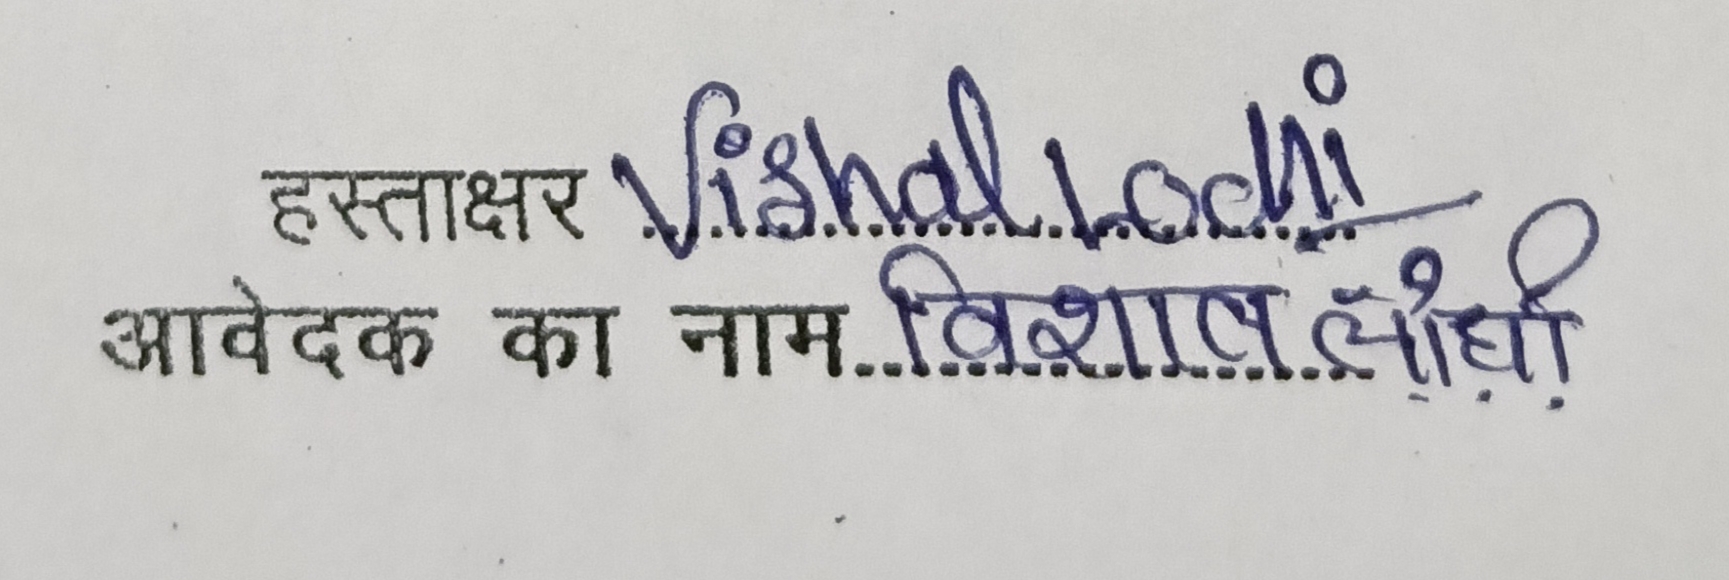 हस्ताक्षर Vishal Lodhi
आवेदक का नाम विशाल लोधी